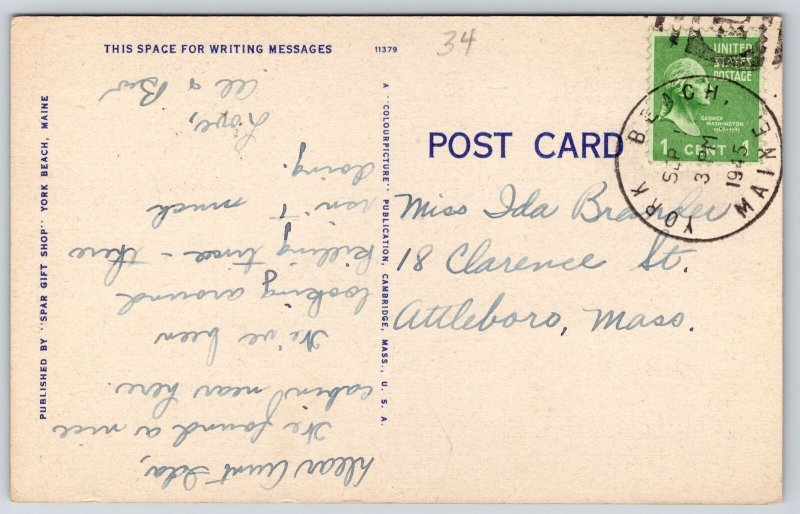 THIS SPACE FOR WRITING MESSAGES
11379
34
PUBLISHED BY "SPAR GIFT SHOP" YORK BEACH, MAINE
A "COLOURPICTURE" PUBLICATION, CAMBRIDGE, MASS., U. S. A.
POST CARD
UNITED
STATES
POSTAGE
GEORGE
WASHINGTON
1 CENT 1
YORK BEACH,
MAINE
SEP 1
3 PM
1945
Miss Ida
18 Clarence St.
Attleboro, Mass.
Dear Aunt Ida,
We found a nice
cabin near here.
We've been
looking around
killing time - there
isn't much
doing.
Love,
Al & Bev